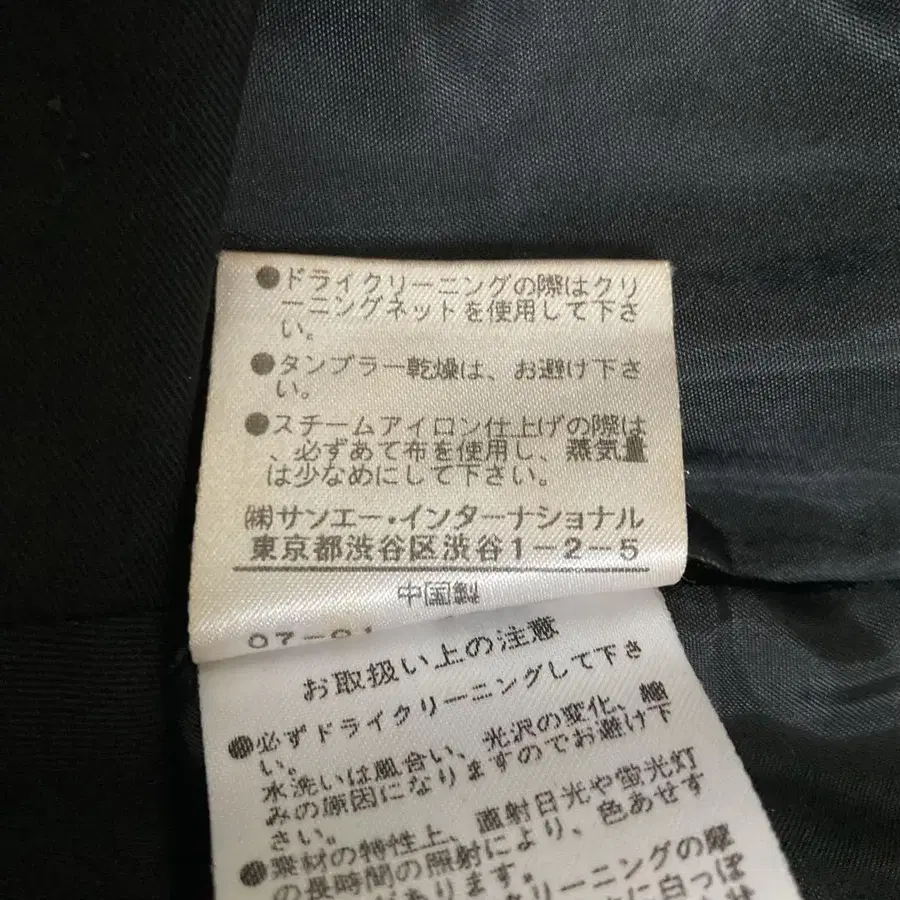 ●ドライクリーニングの際はクリ
ーニングネットを使用して下さ
い。
●タンブラー乾燥は、お避け下さ
い。
●スチームアイロン仕上げの際は
、必ずあて布を使用し、蒸気量
は少なめにして下さい。
㈱サンエー・インターナショナル
東京都渋谷区渋谷1-2-5
中国製
07-01
お取扱い上の注意
●必ずドライクリーニングして下さ
い。
水洗いは風合い、光沢の変化、縮
みの原因になりますのでお避け下
さい。
●素材の特性上、直射日光や蛍光灯
の長時間の照射により、色あせす
があります。
クリーニングの摩
に白っぽ